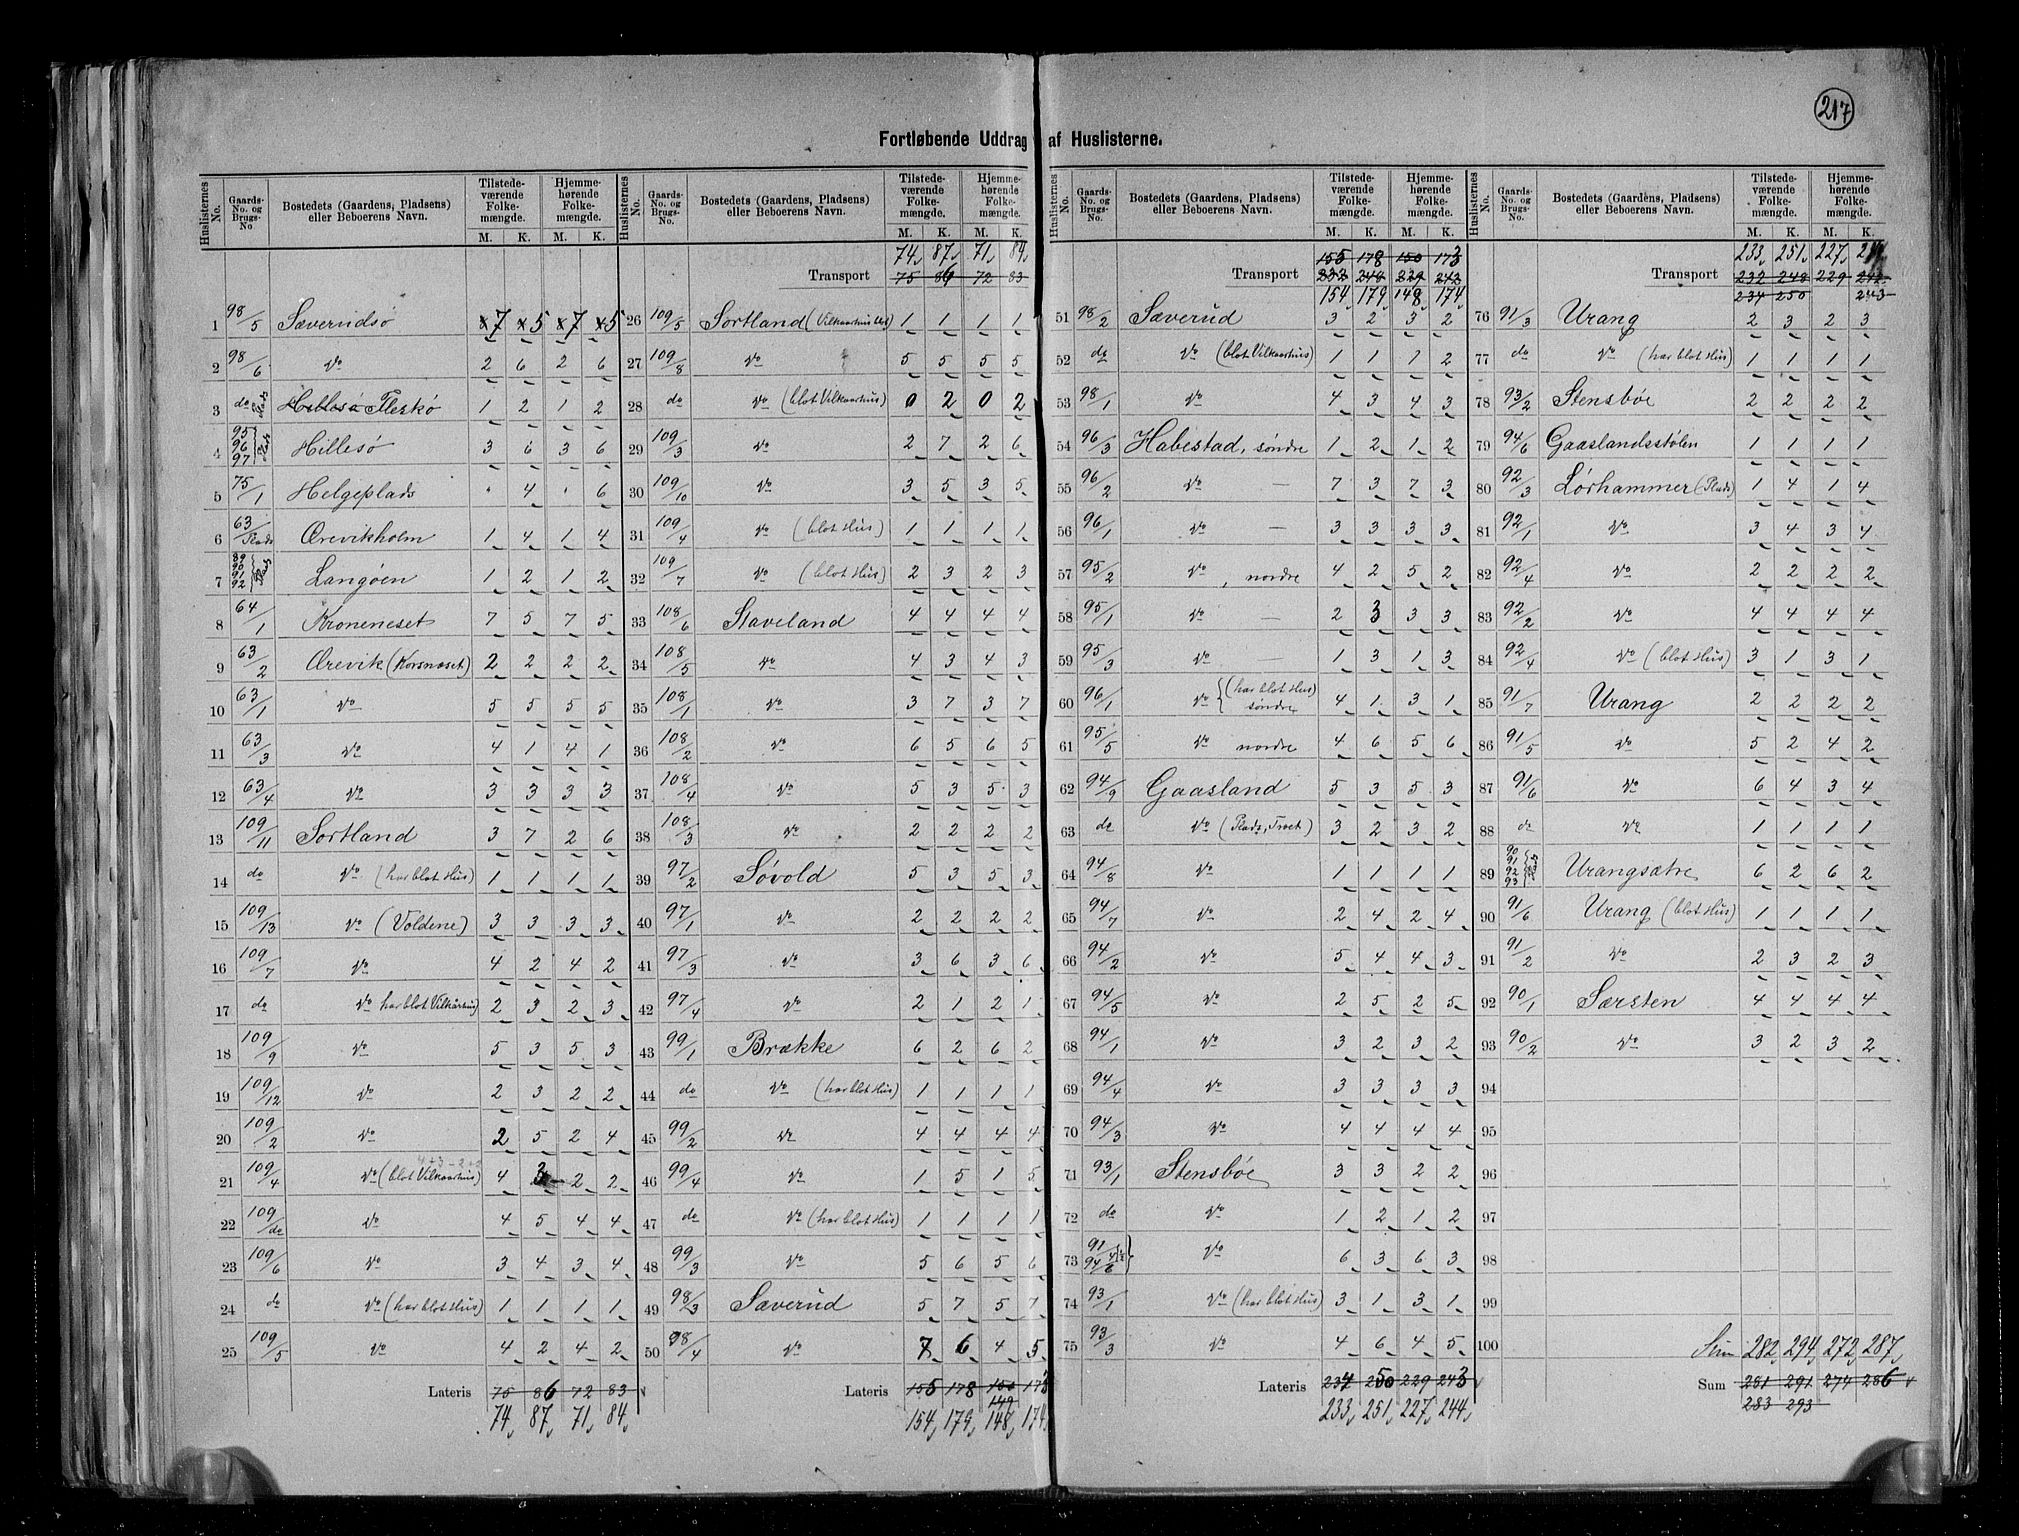 217
Fortløbende Uddrag af Huslisterne.
Huslisternes No. | Gaards-No. og Brugs-No | Bostedets (Gaardens, Pladsens) eller Beboerens Navn. | Tilstedeværende Folkemængde. M. K. | Hjemmehørende Folkemængde. M. K.
1 98/5 Sæverudsø 7 5 7 5
2 98/6 do 2 6 2 6
3 do Plads Hillesø Fleskø 1 2 1 2
4 95 96 97 Plads Hillesø 3 6 3 6
5 75/1 Helgeplads " 4 " 6
6 63/Plads Ørevikholm 1 4 1 4
7 89 90 91 92 Plads Langøen 1 2 1 2
8 64/1 Kroneneset 7 5 7 5
9 63/2 Ørevik (Korsnæset) 2 2 2 2
10 63/1 do 5 5 5 5
11 63/3 do 4 1 4 1
12 63/4 do 3 3 3 3
13 109/11 Sortland 3 7 2 6
14 do do (har blot Hus) 1 1 1 1
15 109/13 do (Voldene) 3 3 3 3
16 109/7 do 4 2 4 2
17 do do har blot Vilkårhus) 2 3 2 3
18 109/9 do 5 3 5 3
19 109/12 do 2 3 2 2
20 109/2 do 2 5 2 4
21 109/4 do (blot Vilkaarhus) 4 3 2 2
22 109/do do 4 5 4 4
23 109/6 do 3 4 3 4
24 do do (har blot Hus) 1 1 1 1
25 109/5 do 4 2 4 2
Lateris 75 86 72 83
74 87 71 84
74 87 71 84
Transport 75 86 72 83
26 109/5 Sortland (Vilkaarhus 1 1 1 1
27 109/8 do 5 5 5 5
28 do do (blot Vilkaarhus) 0 2 0 2
29 109/3 do 2 7 2 6
30 109/10 do 3 5 3 5
31 109/4 do (blot Hus) 1 1 1 1
32 109/7 do (blot Hus) 2 3 2 3
33 108/6 Staveland 4 4 4 4
34 108/5 do 4 3 4 3
35 108/1 do 3 7 3 7
36 108/2 do 6 5 6 5
37 108/4 do 5 3 5 3
38 108/3 do 2 2 2 2
39 97/2 Søvold 5 3 5 3
40 97/1 do 2 2 2 2
41 97/3 do 3 6 3 6
42 97/4 do 2 1 2 1
43 99/1 Brække 6 2 6 2
44 do do (har blot Hus) 1 1 1 1
45 99/2 do 4 4 4 4
46 99/4 do 1 5 1 5
47 do do (har blot Hus) 1 1 1 1
48 99/3 do 5 6 5 6
49 98/3 Sæverud 5 7 5 7
50 98/4 do 7 6 4 5
Lateris 155 178 150 173
149
154 179 148 174
155 178 150 173
Transport 232 248 229 242
154 179 148 174
51 98/2 Sæverud 3 2 3 2
52 do do (blot Vilkaarhus) 1 1 1 2
53 98/1 do 4 3 4 3
54 96/3 Habestad, søndre 1 2 1 2
55 96/2 do — 7 3 7 3
56 96/1 do — 3 3 3 3
57 95/2 do, nordre 4 2 5 2
58 95/1 do — 2 3 3 3
59 95/3 do — 1 3 1 3
60 96/1 do {(har blot Hus) søndre 4 1 3 1
61 95/5 do nordre 4 6 5 6
62 94/9 Gaasland 5 3 5 3
63 do do (Plads, Træet) 3 2 3 2
64 94/8 do 1 1 1 1
65 94/7 do 2 4 2 4
66 94/2 do 5 4 4 3
67 94/5 do 2 5 2 5
68 94/1 do 3 2 3 2
69 94/4 do 3 3 3 3
70 94/3 do 4 4 4 4
71 93/1 Stensbøe 3 3 2 2
72 do do 1 2 1 2
73 91/ 94/6 do 6 3 6 3
74 93/1 do (har blot Hus) 3 1 3 1
75 93/3 do 4 6 4 5
Lateris 234 250 229 243
233 251 227 244
233 251 227 244
Transport 232 248 229 242
234 250 243
76 91/3 Urang 2 3 2 3
77 do do (har blot Hus) 1 1 1 1
78 93/2 Stensbøe 2 2 2 2
79 94/6 Gaaslandsstølen 1 1 1 1
80 92/3 Lørhammer (Plads) 1 4 1 4
81 92/1 do 3 4 3 4
82 92/4 do 2 2 2 2
83 92/2 do 4 4 4 4
84 92/4 do (blot Hus) 3 1 3 1
85 91/7 Urang 2 2 2 2
86 91/5 do 5 2 4 2
87 91/6 do 6 4 3 4
88 do do 1 1 1 1
89 90 91 92 93 Plads Urangsætre 6 2 6 2
90 91/6 Urang (blot Hus) 1 1 1 1
91 91/2 do 2 3 2 3
92 90/1 Særsten 4 4 4 4
93 90/2 do 3 2 3 2
94
95
96
97
98
99
100 Sum 282 294 272 287
Sum 281 291 274 286
283 293